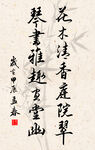 花木清香庭院翠
琴書雅趣景靈幽
歲在甲辰孟春